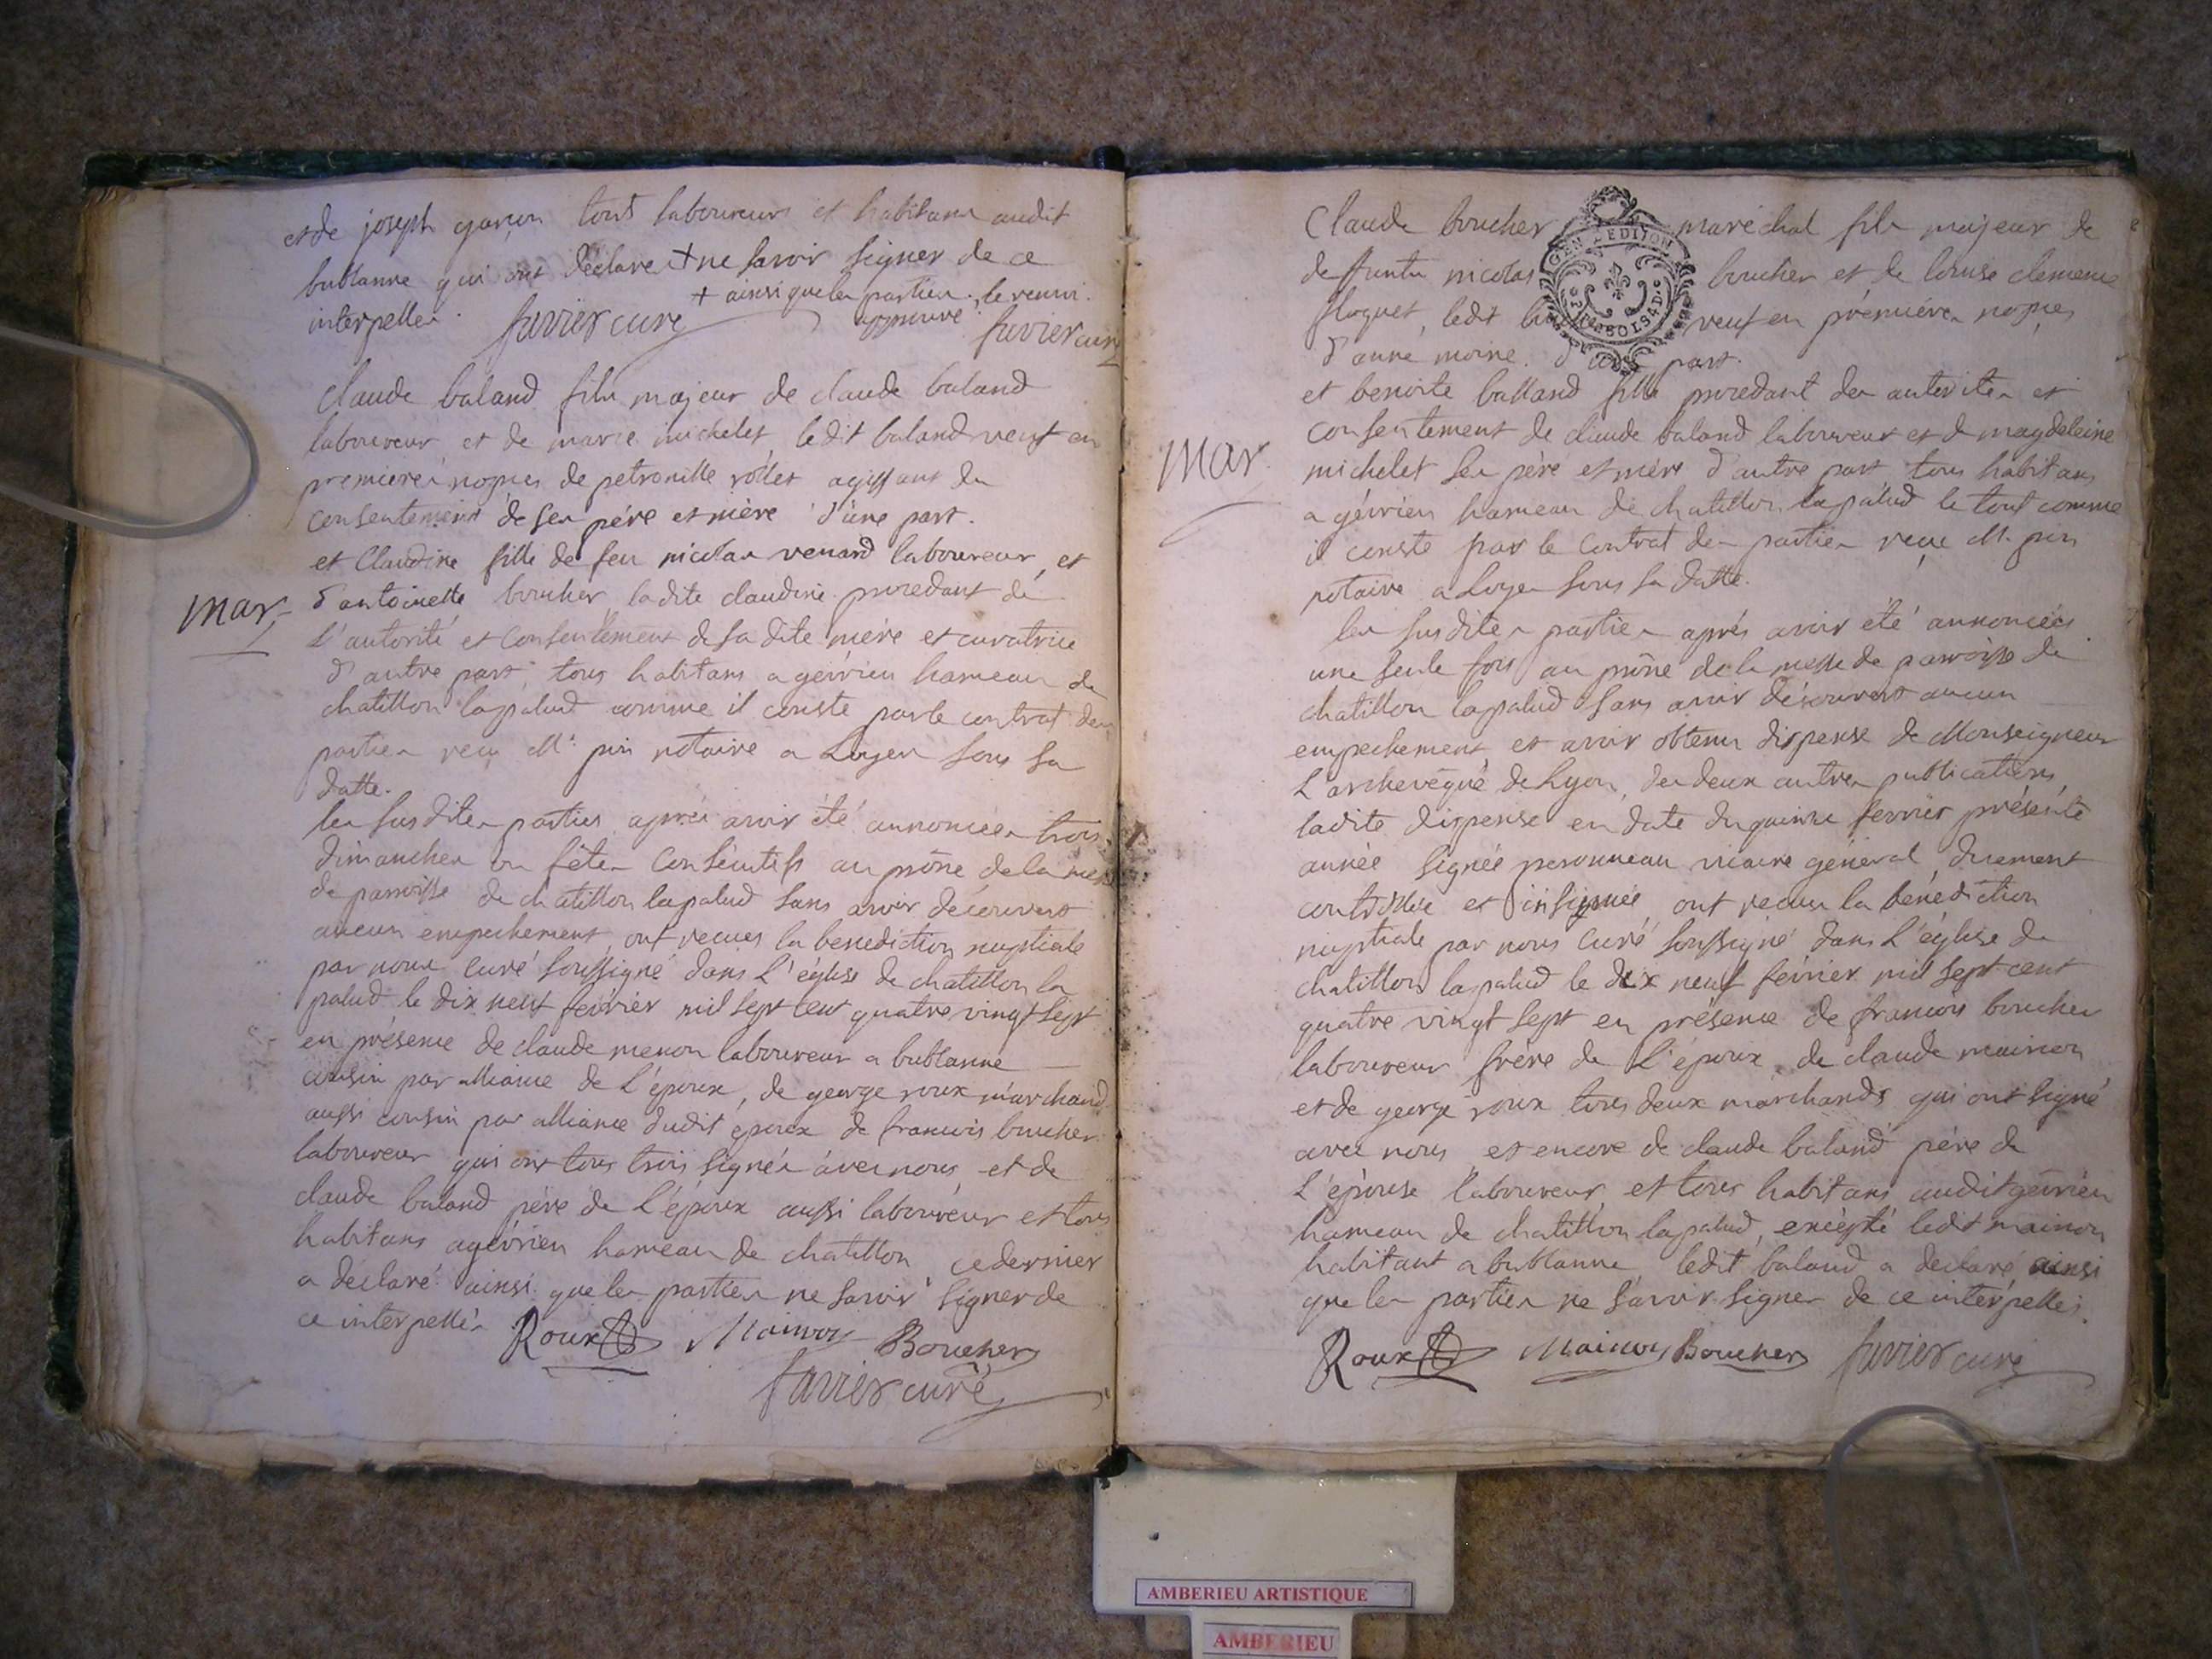 et de joseph garçon tous laboureurs et habitans audit
bublanne qui ont déclaré + ne savoir signer de ce
+ ainsi que les parties. le renvoi
interpellés. favier curé approuvé favier curé
claude baland fils majeur de claude baland
laboureur, et de marie michelet, ledit baland veuf en
premieres nopces de petronille rollet agissant du
consentement de ses pére et mère d'une part.
et Claudine fille de feu nicolas venard laboureur, et
Mar d'antoinette boucher, ladite claudine procedant de
l'autorité et consentement de sa dite mére et curatrice
d'autre part, tous habitans a gévrieu hameau de
chatillon lapalud comme il conste par le contrat des
parties reçu Mr. pin notaire a Loyes sous sa
datte.
les susdites parties après avoir été annoncées trois
dimanches ou fêtes consécutifs au prône de la messe
de paroisse de chatillon lapalud sans avoir découvert
aucun empechement, ont recues la benediction nuptiale
par nous curé soussigné dans l'église de chatillon la
palud le dix neuf février mil sept cent quatre vingt sept
en présence de claude menon laboureur a bublanne
cousin par alliance de l'époux, de george roux marchand
aussi cousin par alliance dudit époux de francois boucher
laboureur qui ont tous trois signés avec nous, et de
claude baland pére de l'époux aussi laboureur et tous
habitans agévrieu hameau de chatillon ce dernier
a déclaré ainsi que les parties ne savoir signer de
ce interpellés Roux Mainon Boucher
favier curé
Claude boucher maréchal fils majeur de
deffuntu nicolas boucher et de louise clemence
floquet, ledit veuf en prémiéres nopces
d'anne moine. d'une part.
et benoite balland fille procedant des autorités et
consentement de claude baland laboureur et de magdeleine
Mar michelet ses pére et mére d'autre part tous habitans
a gévrieu hameau de chatillon lapalud le tout comme
il conste par le contrat des parties reçu M. pin
notaire a Loyes sous sa datte.
les susdites parties après avoir été annoncées
une seule fois au prône de la messe de paroisse de
chatillon lapalud sans avoir découvert aucun
empechement et avoir obtenu dispense de Monseigneur
L'archevêque de Lyon, des deux autres publications,
ladite dispense en date du quinze fevrier présente
année signée peronneau vicaire géneral, duement
controllée et insinuée ont recus la bénediction
nuptiale par nous curé soussigné dans l'église de
chatillon lapalud le dix neuf février mil sept cent
quatre vingt sept en présence de francois boucher
laboureur frère de l'époux, de claude mainon
et de george roux tous deux marchands qui ont signé
avec nous et encore de claude baland pére de
l'épouse laboureur, et tous habitans audit gévrieu
hameau de chatillon lapalud, excepté ledit mainon
habitant a bublanne ledit baland a declaré ainsi
que les parties ne savoir signer de ce interpellés.
Roux Mainon Boucher favier curé
AMBERIEU ARTISTIQUE
AMBERIEU